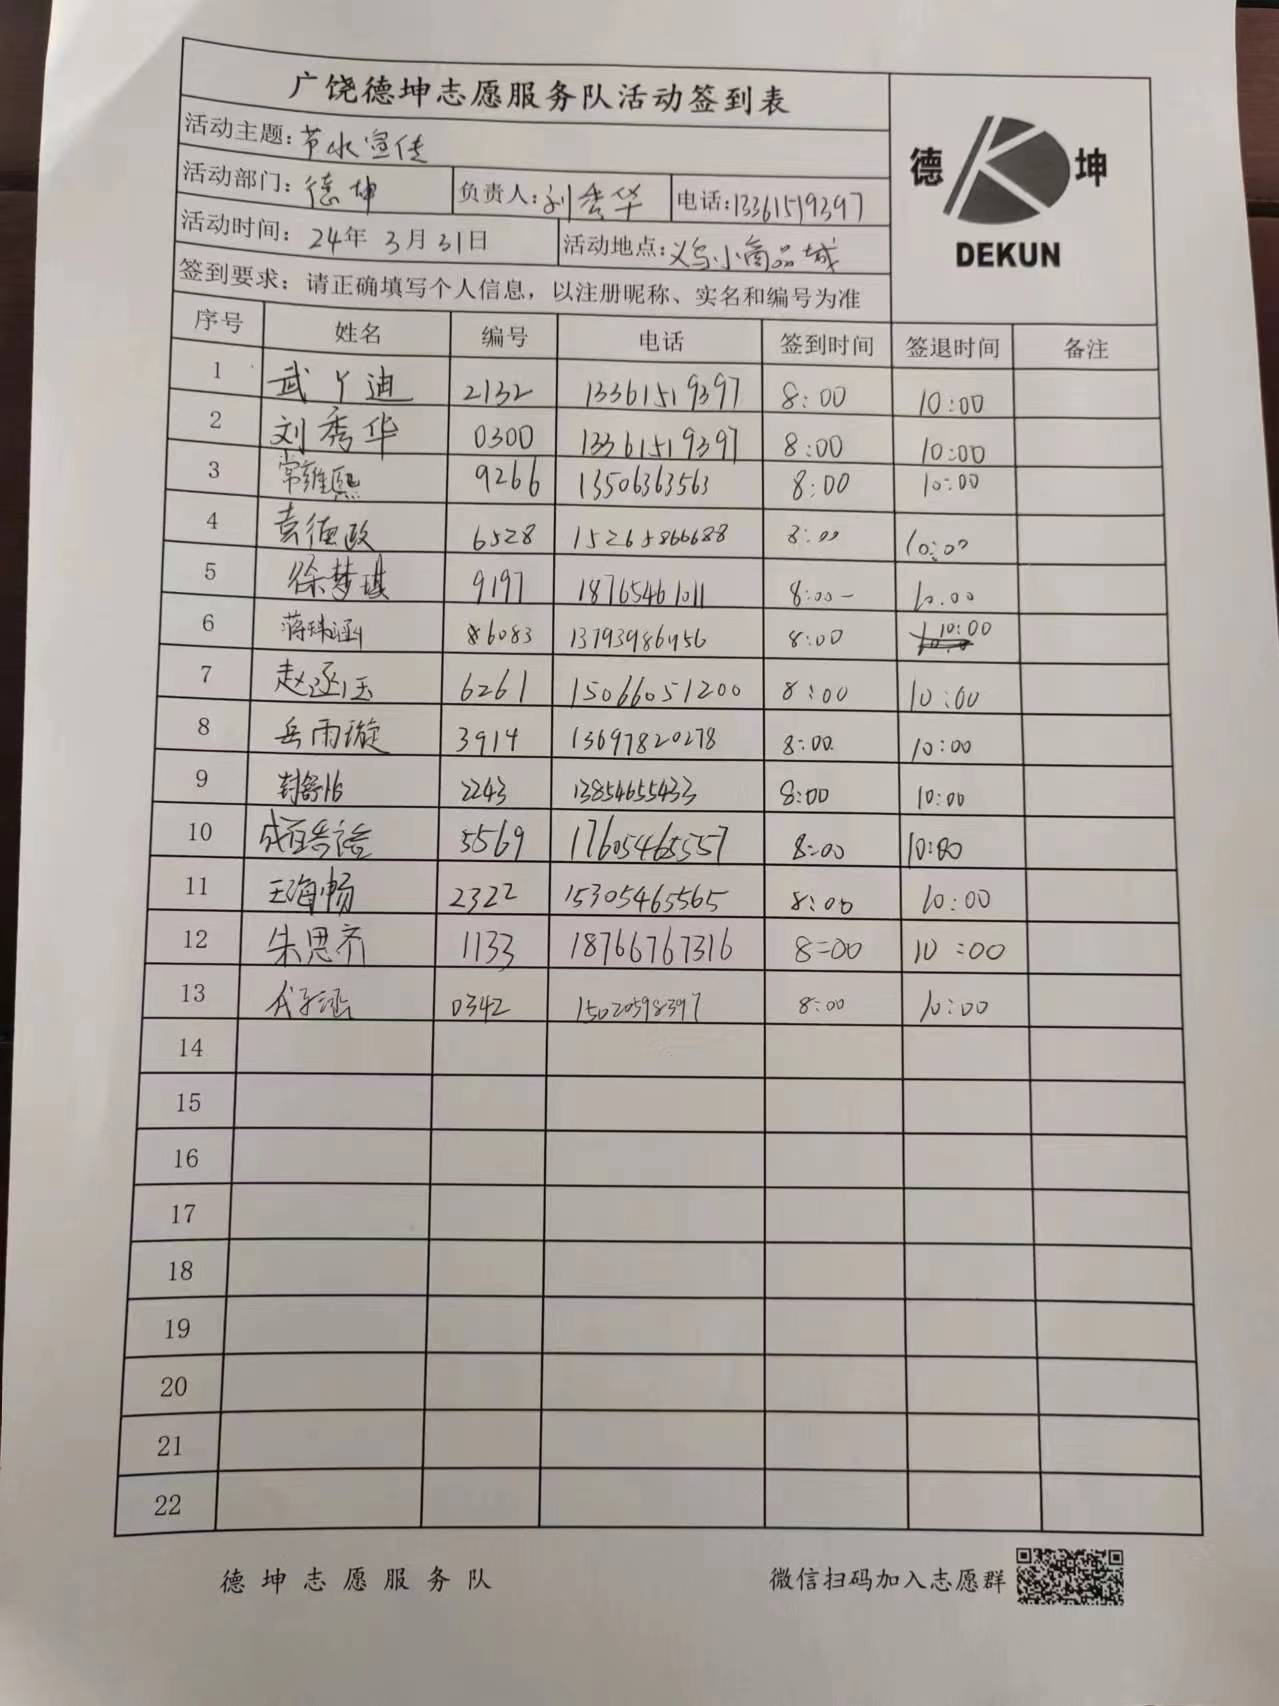 广饶德坤志愿服务队活动签到表
活动主题：节水宣传
德 坤
DEKUN
活动部门：德坤 负责人：刘秀华 电话：13361519397
活动时间：24年3月31日 活动地点：义乌小商品城
签到要求：请正确填写个人信息，以注册昵称、实名和编号为准
序号 姓名 编号 电话 签到时间 签退时间 备注
1 武丫迪 2132 13361519397 8:00 10:00
2 刘秀华 0300 13361519397 8:00 10:00
3 常雍熙 9266 13506363563 8:00 10:00
4 袁德政 6528 15265866688 8:00 10:00
5 徐梦琪 9197 18765461011 8:00- 10.00
6 蒋珠涵 86083 8:00 10:00
7 6261 15066051200 8:00 10:00
8 岳雨璇 3914 13697820278 8:00 10:00
9 2243 13854655433 8:00 10:00
10 5569 17605465557 8:00 10:00
11 王海畅 2322 15305465565 8:00 10:00
12 朱思齐 1133 18766767316 8=00 10:00
13 代子涵 0342 15020598397 8:00 10:00
14
15
16
17
18
19
20
21
22
德坤志愿服务队 微信扫码加入志愿群